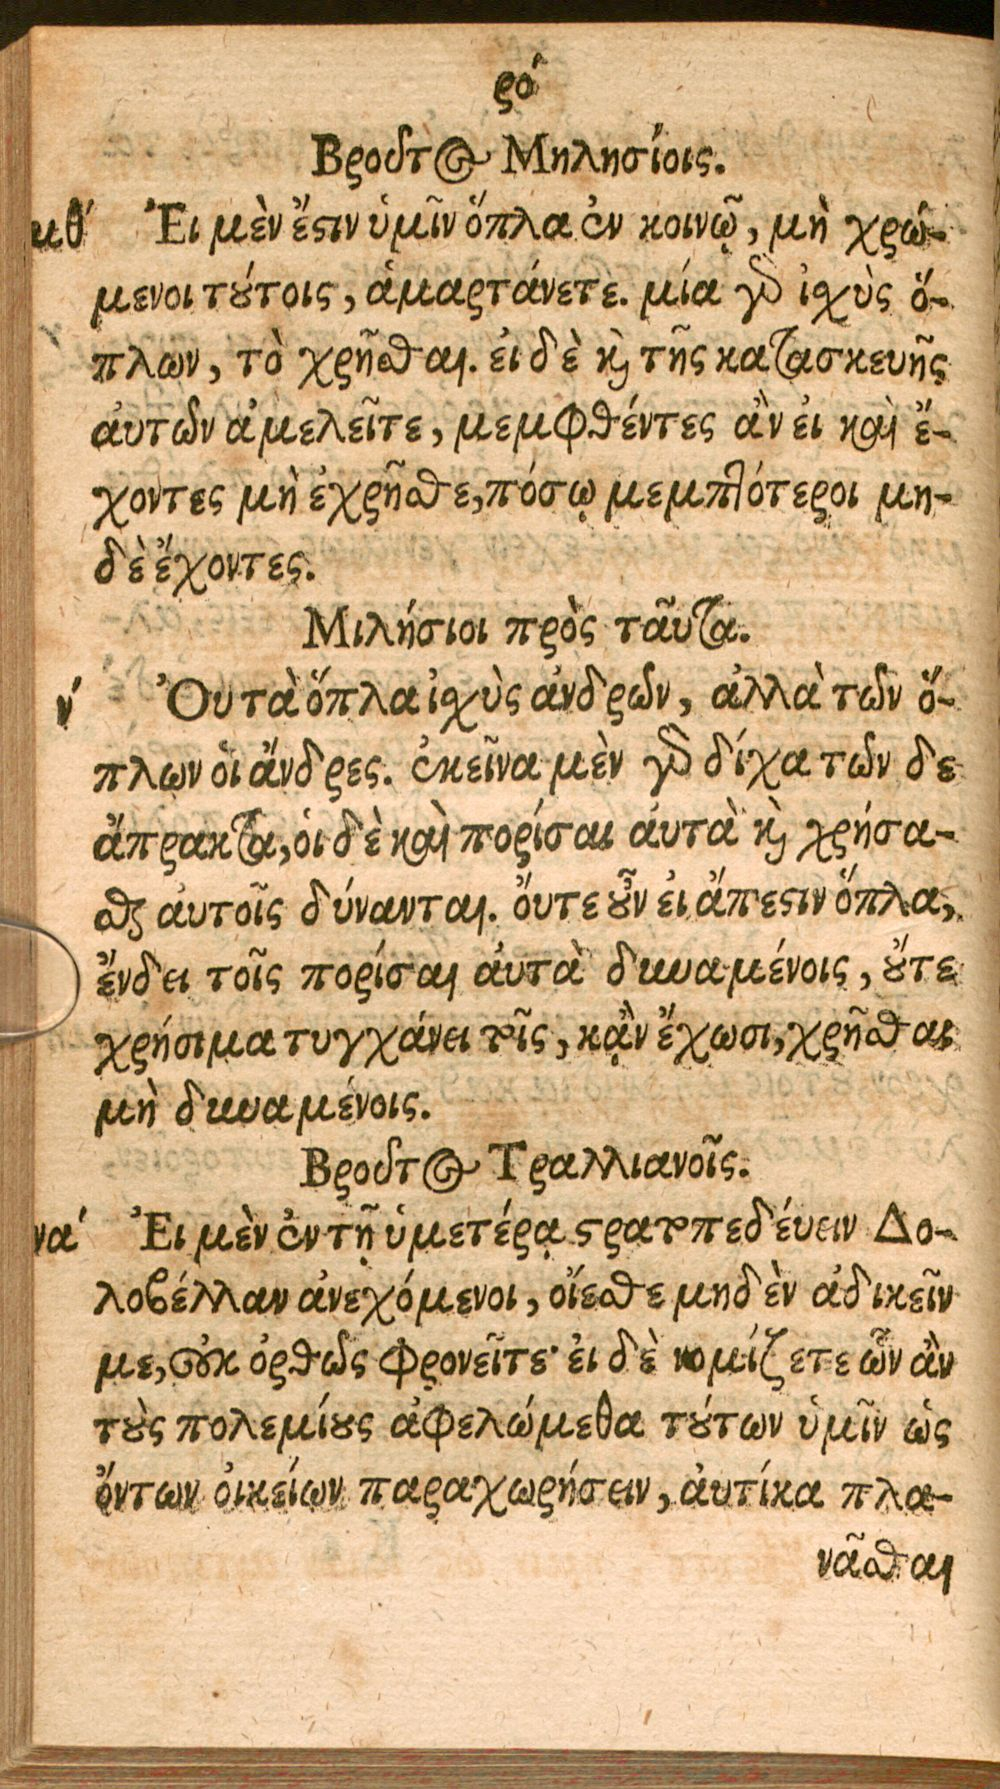 ρό
Βροῦτος Μηλησίοις.
μθ´ Ἐι μὲν ἔστιν ὑμῖν ὅπλα ἐν κοινῷ, μὴ χρώ-
μενοι τούτοις, ἁμαρτάνετε. μία γὸ ἰχὺς ὅ-
πλων, τὸ χρῆσθαι. ἐι δὲ κỳ τῆς κατασκευῆς
ἀυτῶν ἀμελεῖτε, μεμφθέντες ἂν ἐι καὶ ἔ-
χοντες μὴ ἐχρῆσθε, πόσῳ μεμπτότεροι μη-
δὲ ἔχοντες.
Μιλήσιοι πρὸς ταῦτα.
ν´ Ὀυ τὰ ὅπλα ἰχὺς ἀνδρῶν, ἀλλὰ τῶν ὅ-
πλων ὁι ἄνδρες. ἐκεῖνα μὲν γὸ δίχα τῶν δε
ἄπρακτα, ὁι δὲ καὶ πορίσαι ἀυτὰ κỳ χρήσα-
σθαι ἀυτοῖς δύνανται. ὄυτε οὖν ἐι ἄπεστιν ὅπλα,
ἔνδει τοῖς πορίσαι ἀυτὰ δυναμένοις, οὔτε
χρήσιμα τυγχάνει τοῖς, κᾂν ἔχωσι, χρῆσθαι
μὴ δυναμένοις.
Βροῦτος Τραλλιανοῖς.
να´ Ἐι μὲν ἐν τῇ ὑμετέρᾳ στρατοπεδέυειν Δο-
λοβέλλαν ἀνεχόμενοι, οἴεσθε μηδὲν ἀδικεῖν
με, οὐκ ὀρθῶς φρονεῖτε· ἐι δὲ νομίζετε ὧν ἂν
τοὺς πολεμίους ἀφελώμεθα τούτων ὑμῖν ὡς
ὄντων ὀικείων παραχωρήσειν, ἀυτίκα πλα-
νᾶσθαι